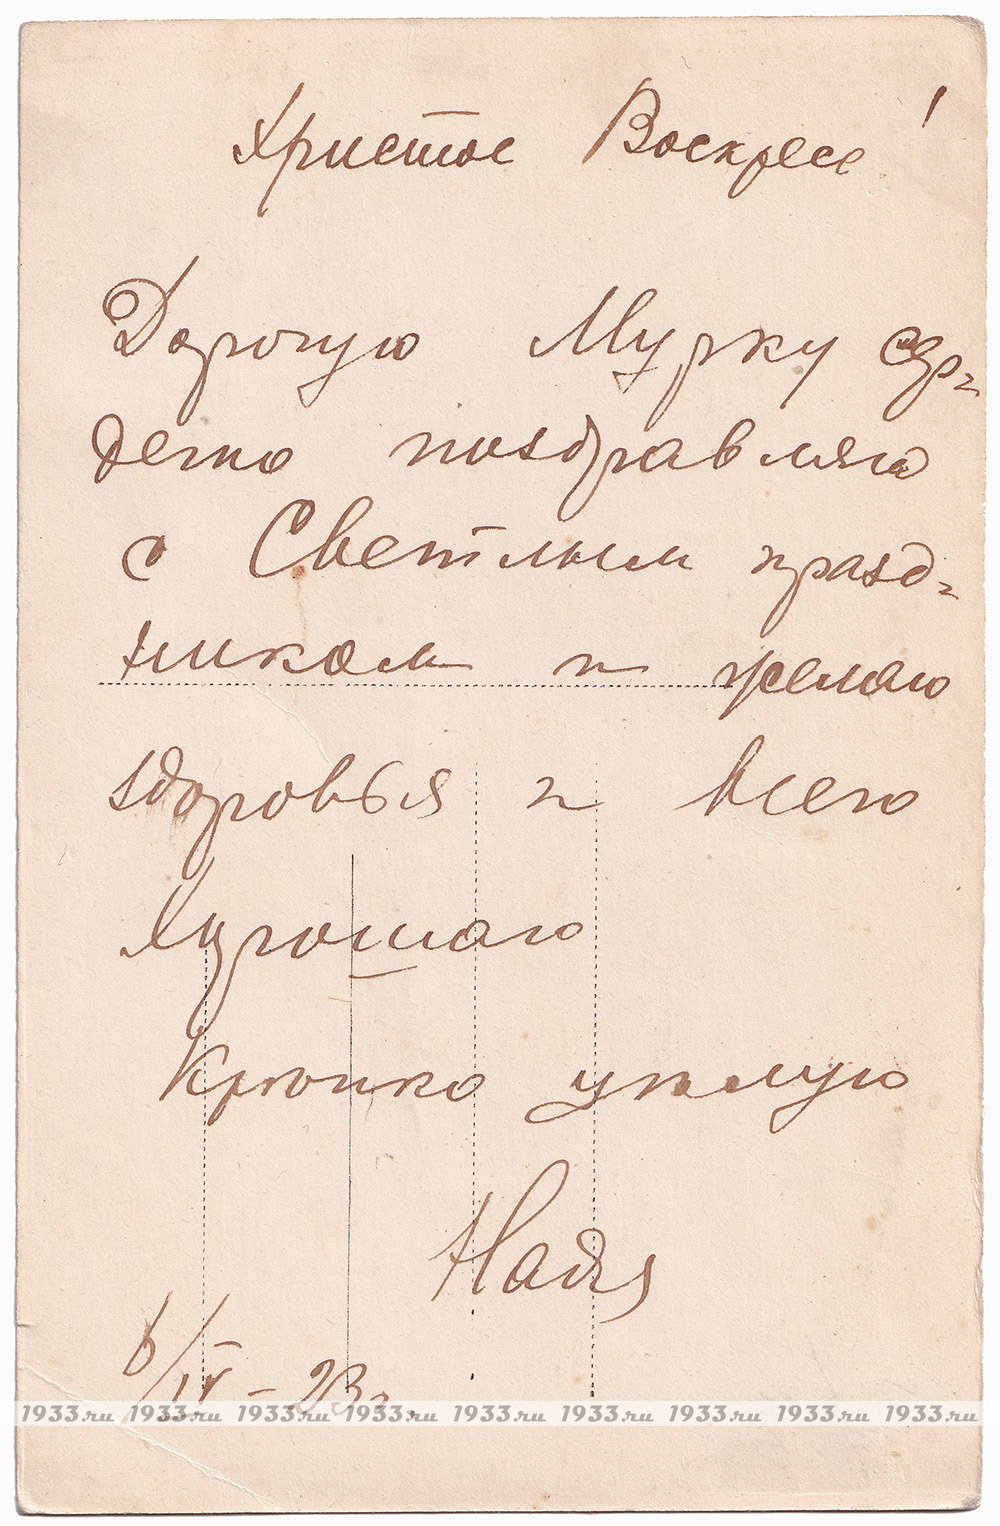 Христос Воскресе!
Дорогую Мурку сер-
дечно поздравляю
с Светлым празд-
ником и желаю
здоровья и всего
хорошаго
Крепко целую
Надя
6/IV - 23 г.
1933.ru 1933.ru 1933.ru 1933.ru 1933.ru 1933.ru 1933.ru 1933.ru 1933.ru